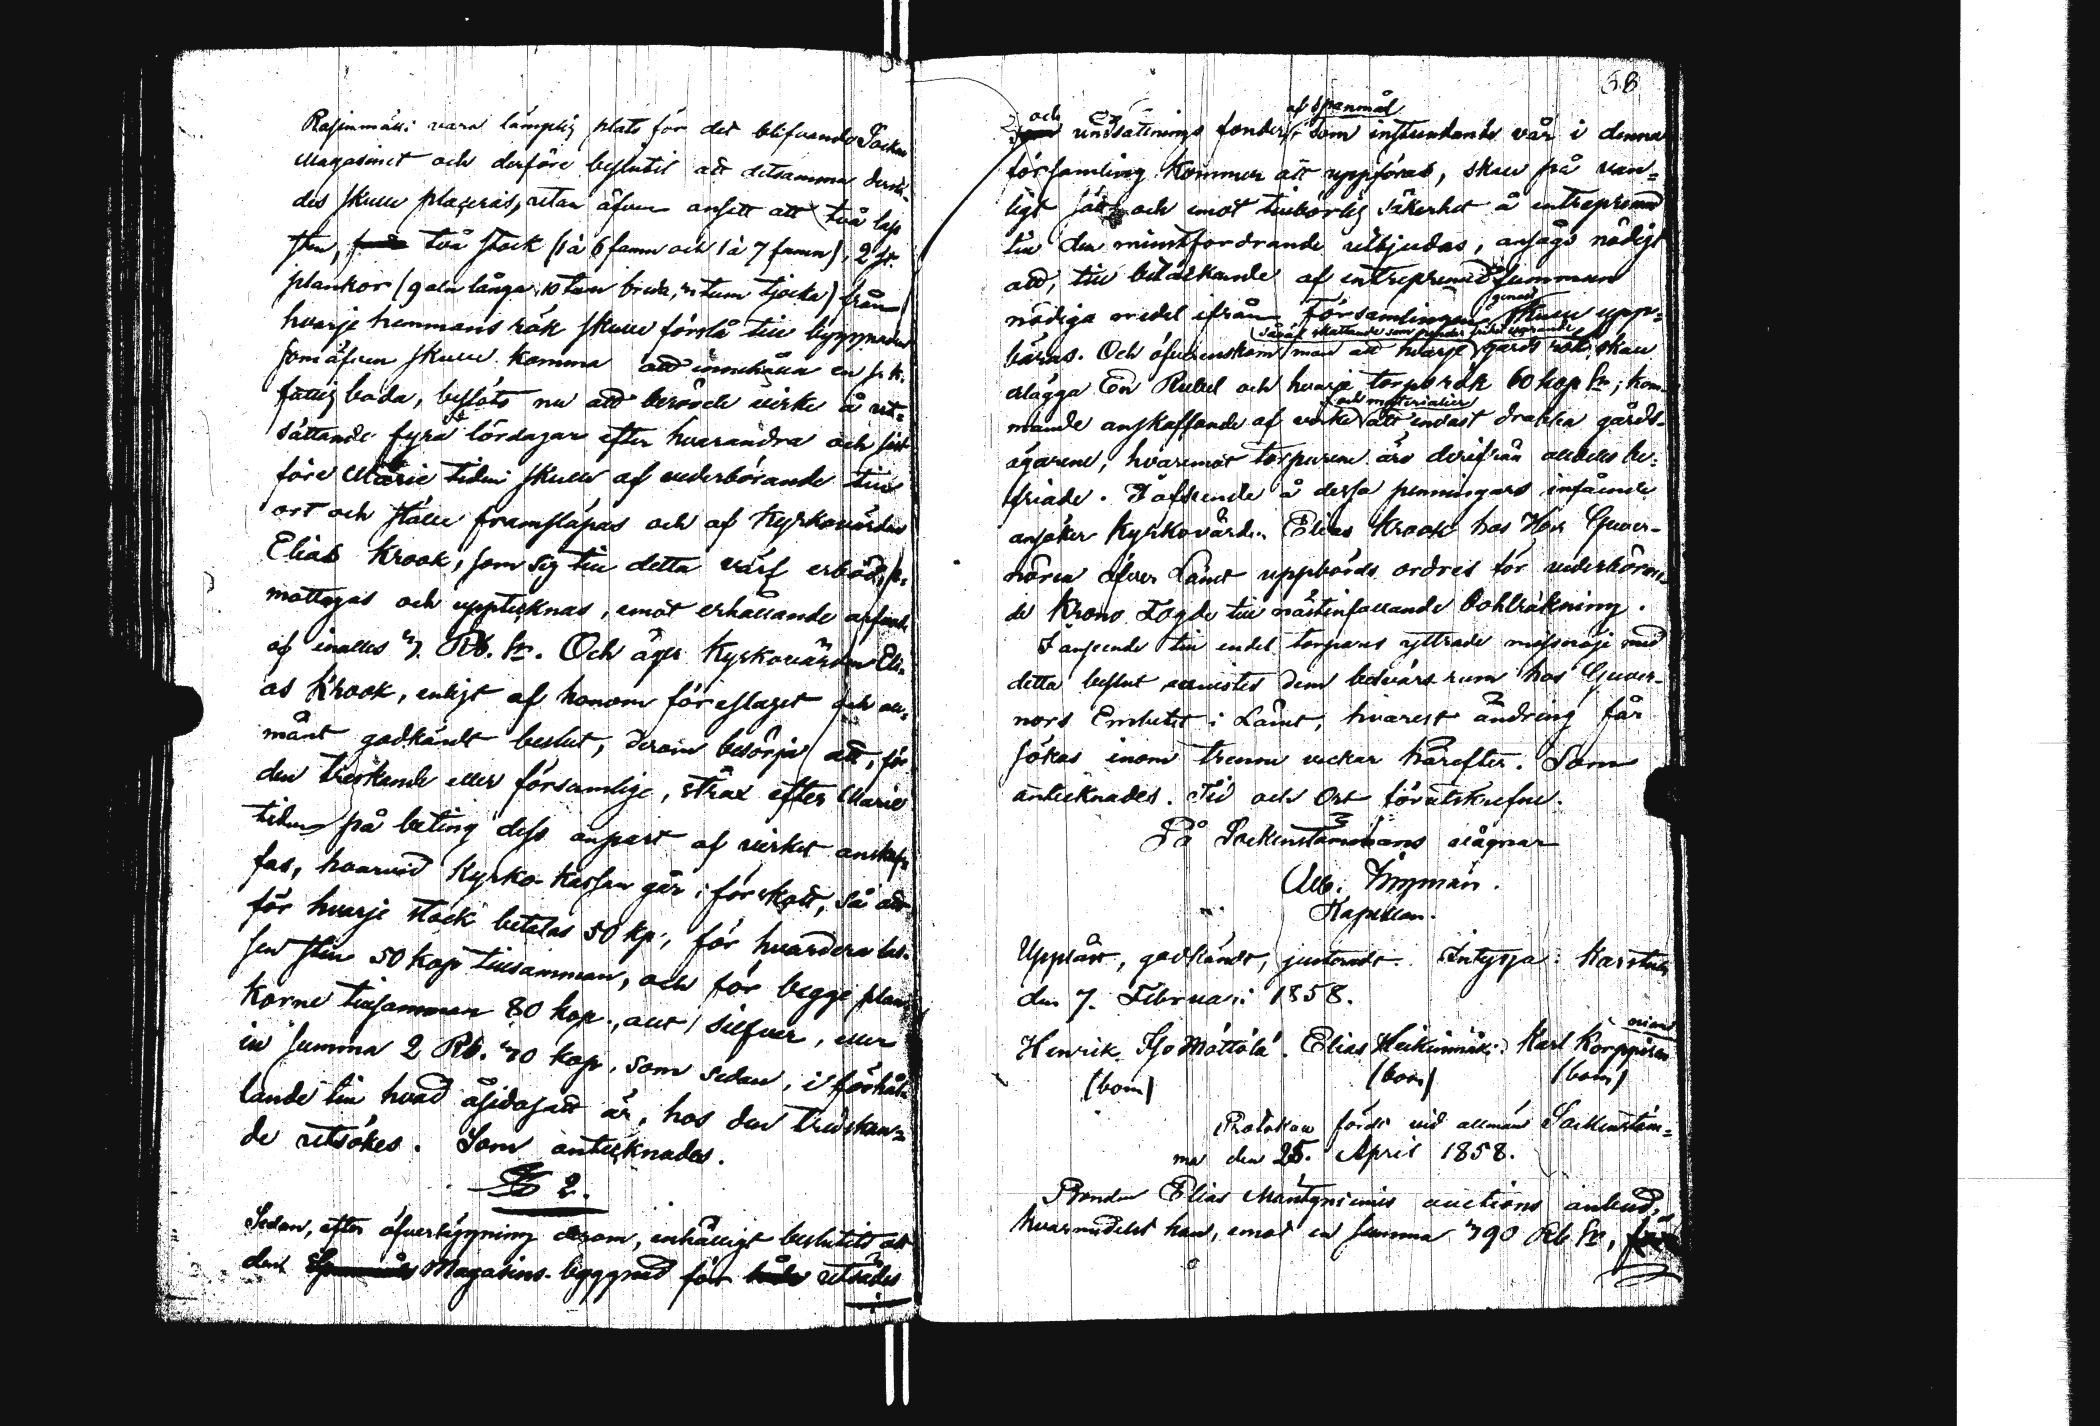 Rasinmäki vara lämplig plats för det blifvande Socken
Magasinet och derföre beslutit att detsamma derstä-
des skulle placeras, utan äfven ansett att två lass
sten, två stock (1 à 6 famn och 1 à 7 famn), 2 st.
plankor (9 aln långa, 10 tum breda, 2 tum tjocka) från
hvarje hemmans rök skulle förslå till byggnaden
som äfven skulle komma att innehålla en s. k.
fattig boda, beslöts nu att berörde virke å ut-
sättande fyra lördagar efter hvarandra och sist
före Marie tiden skulle af vederbörande till
ort och ställe framsläpas och af Kyrkovärden
Elias Krook, som sig till detta värf erböd,
mottagas och uppteknas, emot erhållande arfvode
af inalles 7. Rb. Sr. Och äger Kyrkovärden Eli-
as Krook, enligt af honom föreslaget och all-
mänt godkändt beslut, derom besörja att, för
den tredskande eller försumlige, strax efter Marie
tiden på beting dess anpart af virket anskaf-
fas, hvarvid Kyrko-kassan går i förskott, så att
för hvarje stock betalas 50 kp., för hvardera las-
sen sten 50 kop tillsamman, och för begge plan-
korne tillsamman 80 kop., allt i silfver, eller
in summa 2 Rb. 70 kop, som sedan, i förhål-
lande till hvad åsidosatt är, hos den tredskan-
de utsökes. Som antecknades.
§ 2.
Sedan, efter öfverläggning derom, enhälligt beslutits att
den Magasins-byggnad för utsädes
58
af spanmål
och undsättnings fonder, som instundande vår i denna
församling kommer att uppföras, skall på van-
ligt sätt och emot tillbörlig säkerhet å entreprenad
till den minstfordrande utbjudas, ansågs nödigt
att, till betäckande af entreprenad summan
nödiga medel ifrån Församlingen genast skulle upp-
bäras. Och öfverenskom man att hvarje gårds rök, skall
erlägga En Rubel och hvarje torpsrök 60 kop Sr; kom-
och materialier
mande anskaffande af virke att endast drabba gårds-
ägarene, hvaremot torparene äro derifrån alldeles be-
friade. I afseende å dessa penningars infående
ansöker Kyrkovärden Elias Krook hos Herr Guver-
nören öfver Länet uppbörds ordres för vederböran-
de Krono Fogde till nästinfallande Bohlräkning.
I anseende till endel torpares yttrade missnöje med
detta beslut, anvistes dem besvärs rum hos Guver-
nors Embetet i Länet, hvarest ändring får
sökas inom trenne veckor härefter. Som
antecknades. Tid och Ort förutskrefne.
På Sockenstämmans vägnar
Kapellan.
Uppläst, godkändt, justeradt. Intyga: Karstula
den 7. Februari 1858.
Henrik Iso Möttölä. Elias Heikinmäki. Karl Korppinen
(bom) (bom) (bom)
Protokoll fördt vid allmän Sockenstäm-
ma den 25. April 1858.
Bonden Elias Mäntyniemis auctions anbud,
hvarmedelst han, emot en summa 790 Rb Sr,